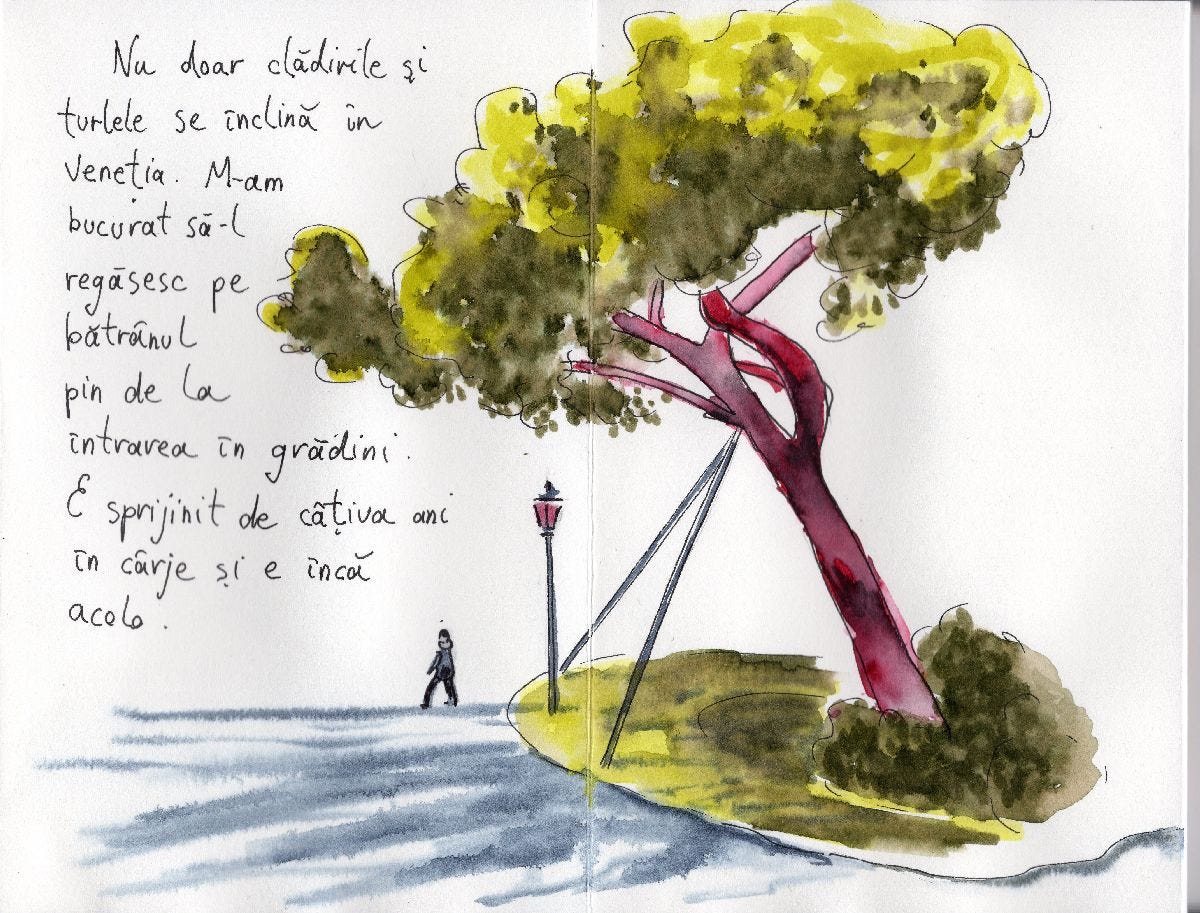 Nu doar clădirile și
turlele se înclină în
Veneția. M-am
bucurat să-l
regăsesc pe
bătrânul
pin de la
intrarea în grădini.
E sprijinit de câțiva ani
în cârje și e încă
acolo.